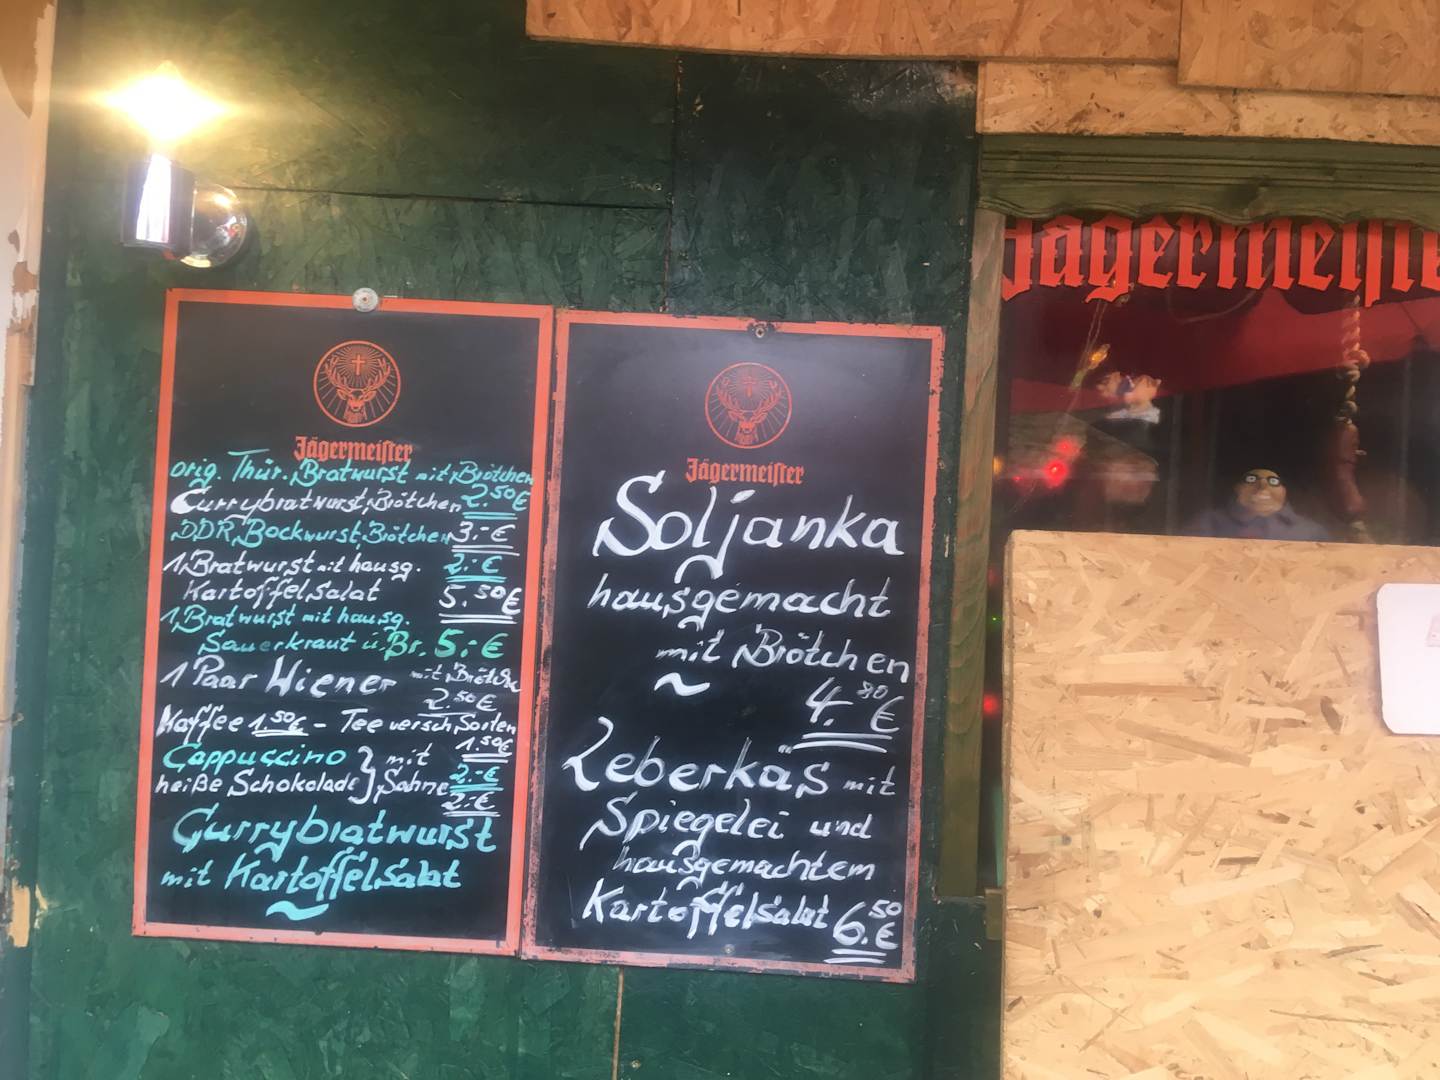 Jägermeister
orig. Thür. Bratwurst mit Brötchen
Currybratwurst, Brötchen 2.50 €
DDR Bockwurst, Brötchen 3.- €
1 Bratwurst mit hausg. 2.- €
Kartoffelsalat 5.50 €
1 Bratwurst mit hausg.
Sauerkraut u. Br. 5.- €
1 Paar Wiener mit Brötch
2.50 €
Kaffee 1.50 € - Tee versch. Sorten
1.50 €
Cappuccino } mit
heiße Schokolade } Sahne 2.- €
2.- €
Currybratwurst
mit Kartoffelsalat
~
Jägermeister
Soljanka
hausgemacht
mit Brötchen
~
4.80 €
Leberkäs mit
Spiegelei und
hausgemachtem
Kartoffelsalat 6.50 €
Jägermeister